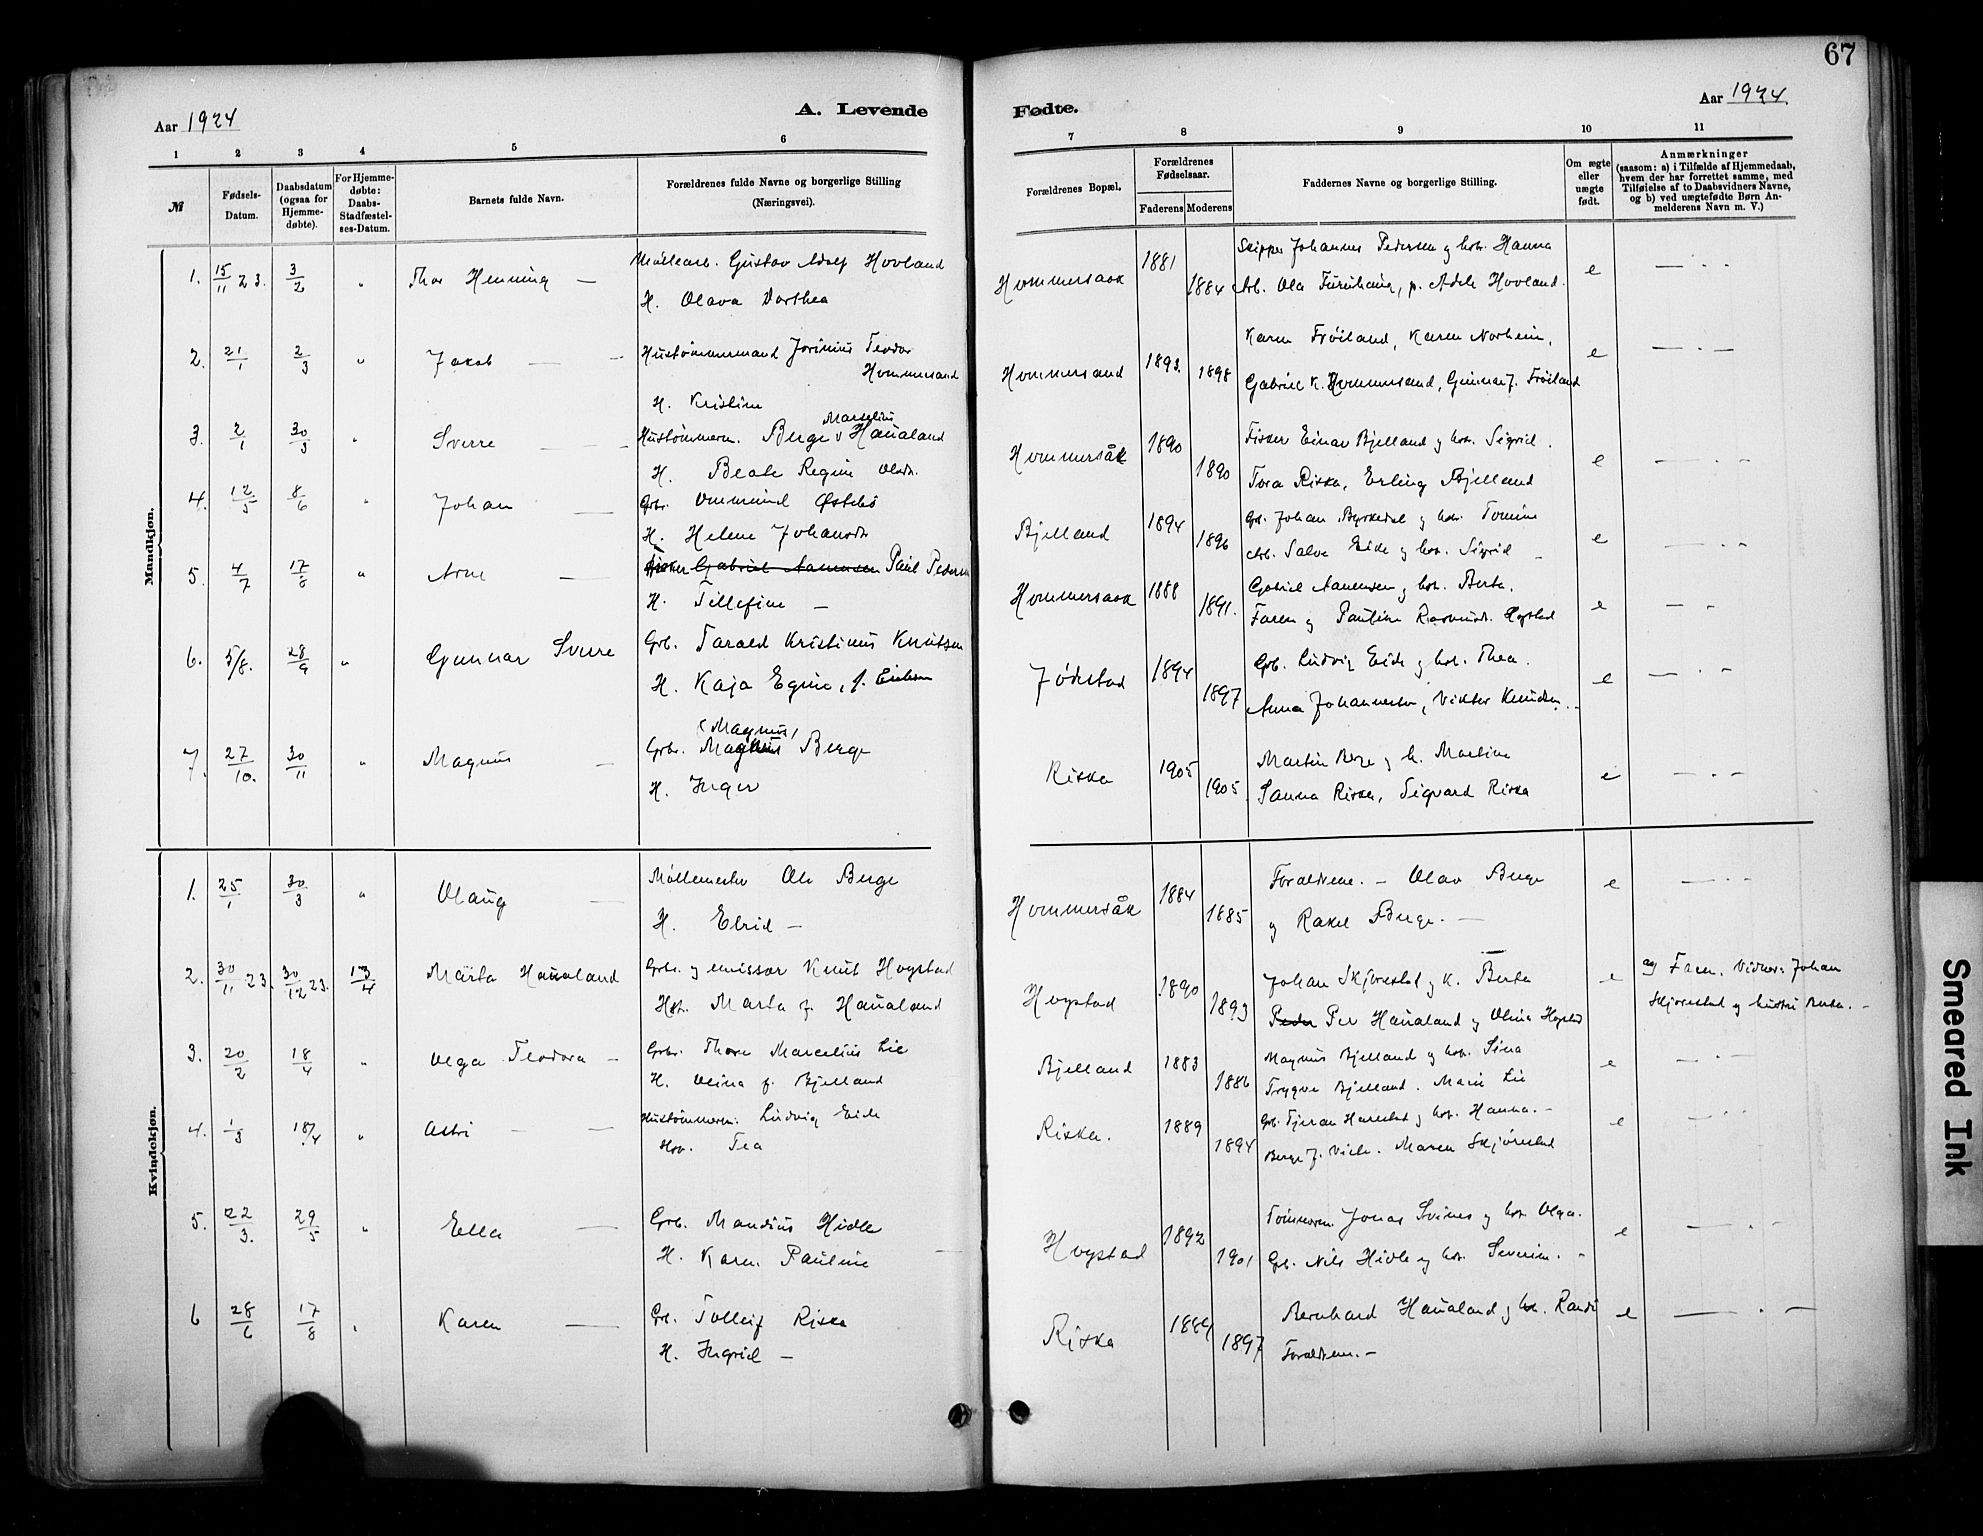 67
Aar 1924
A. Levende
Fødte.
Aar 1924.
1 2 3 4 5 6 7 8 9 10 11
№
Fødsels-
Datum.
Daabsdatum
(ogsaa for
Hjemme-
døbte).
For Hjemme-
døbte:
Daabs-
Stadfæstel-
ses-Datum.
Barnets fulde Navn.
Forældrenes fulde Navne og borgerlige Stilling
(Næringsvei).
Forældrenes Bopæl.
Forældrenes
Fødselsaar.
Faderens Moderens
Faddernes Navne og borgerlige Stilling.
Om ægte
eller
uægte
født.
Anmærkninger
(saasom: a) i Tilfælde af Hjemmedaab,
hvem der har forrettet samme, med
Tilføielse af to Daabsvidners Navne,
og b) ved uægtefødte Børn An-
melderens Navn m. V.)
Mandkjøn.
1. 15/11 23. 3/2 " Thor Henning — Møllearb. Gustav Adolf Hovland
H. Olava Dorthea
Hommersaak 1881 1884 Skipper Johannes Pedersen og hst. Hanna
Arb. Ola Furuhaug, p. Adele Hovland. e — . .
2. 21/1 2/3 " Jakob — Hustømmermand Jorinius Teodor
Hommersand
H. Kristine
Hommersand 1893. 1898 Karen Frøiland, Karen Norheim,
Gabriel K. Hommersand, Gunnar J. Frøiland e — . —
3. 2/1 30/3 " Sverre — Hustømmerm. Berge Marselius Haualand
H. Beate Regine Olsdr.
Hommersåk 1890 1890 Fisker Einar Bjelland og hst. Sigrid.
Tora Riska, Erling Bjelland e — . —
4. 12/5 8/6 " Johan — Gbr. Ommund Østebø
H. Helene Johansdr.
Bjelland 1894 1896 Gb. Johan Byrkedal og hst. Tomine
Arb. Salve Eide og hst. Sigrid — e — . . —
5. 4/7 17/8 " Arne — Fisker Gabriel Aanensen Paul Pedersen
H. Tillefine —
Hommersaak 1888 1891. Gabriel Aanensen og hst. Berta.
Faren og Pauline Rasmusdr. Hogstad e — . —
6. 5/8. 28/9 " Gunnar Sverre Grb. Tarald Kristinius Knutsen
H. Kaja Egine, f. Eriksen
Jødestad 1894 1897 Grb. Ludvig Eide og hst. Thea.
Anna Johannesen, Viktor Knudsen. e — . —
7. 27/10. 30/11 " Magnus — (Magnus)
Grbr. Magnus Berge
H. Inger
Riska 1905 1905. Martin Berge og h. Martine
Sanna Riska, Sigvard Riska e — . —
Kvindekjøn.
1. 25/1 30/3 " Olaug — Møllemester Ole Berge
H. Elrid —
Hommersåk 1884 1885 Foraldrene. — Olav Berge
og Rakel Berge. — e — . . —
2. 30/11 23. 30/12 23. 13/4 Marta Haualand Grbr. og emissær Knut Hogstad
Hst. Marta f. Haualand
Hogstad 1890 1893 Johan Skjørestad og k. Berta
Peder Per Haualand og Olina Hogstad e a) Faren. Vidner: Johan
Skjørestad og hustru Berta. —
3. 20/2 18/4 " Olga Teodora — Grbr. Thore Marcelius Lie
H. Olina f. Bjelland
Bjelland 1883 1886 Magnus Bjelland og hst. Sina
Trygve Bjelland. Marie Lie e — . . —
4. 1/3 18/4 " Astri — Hustømmerm. Ludvig Eide
Hst. Tea
Riska. 1889 1894 Gb. Tjeran Harestad og hst. Hanna. —
Berge J. Viste. Maren Skjørestad e — . . .
5. 22/3. 29/5 " Ella — Grb. Mandius Hidle
H. Karen Pauline —
Hogstad 1892 1901 Tømmerm. Jonas Svines og hst. Olga.
Grb. Nils Hidle og hst. Severine. — e — . . —
6 28/6 17/8 " Karen — Gb. Tolleif Riska
H. Ingrid —
Riska 1889 1897 Bernhard Haualand og hst. Randi
Foraldrene. — e — . —
Smeared Ink